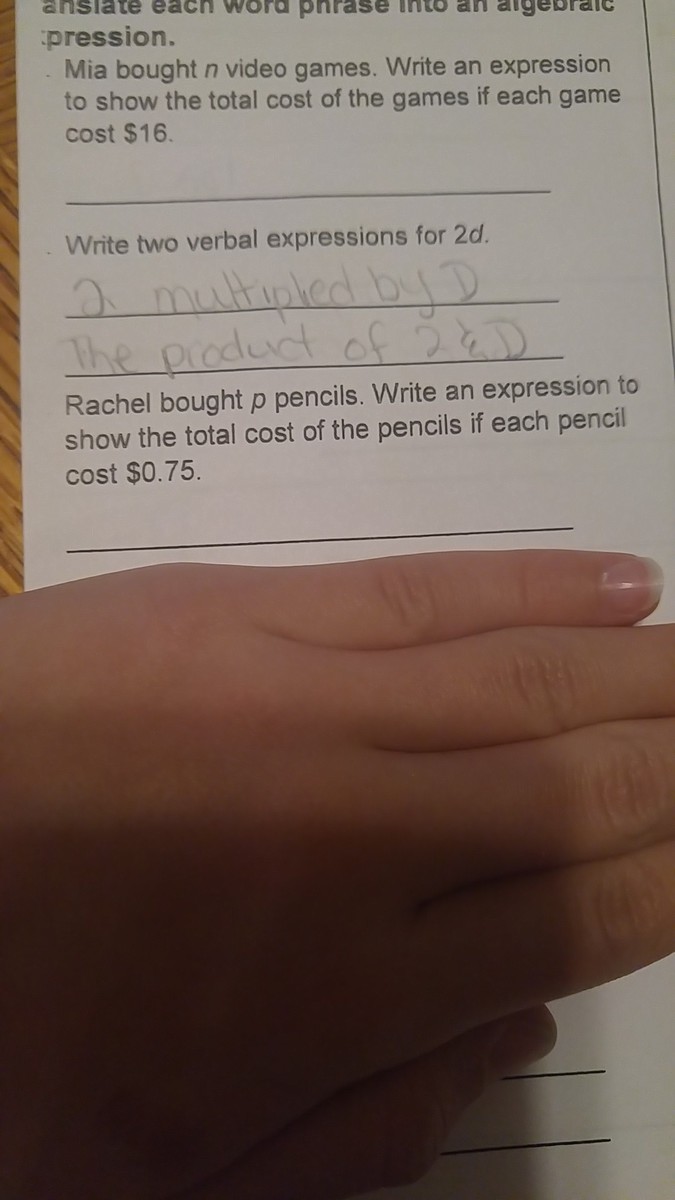 anslate each word phrase into an algebraic
pression.
Mia bought n video games. Write an expression
to show the total cost of the games if each game
cost $16.
Write two verbal expressions for 2d.
2 multiplied by D
The product of 2 & D
Rachel bought p pencils. Write an expression to
show the total cost of the pencils if each pencil
cost $0.75.